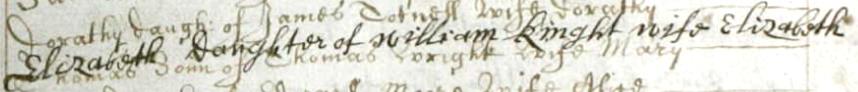 Dorathy daugh: of James Totnell wife Dorathy
Elizabeth daughter of William Kinght wife Elizabeth
Thomas Sonn of Thomas Wright wife Mary
wife Alice